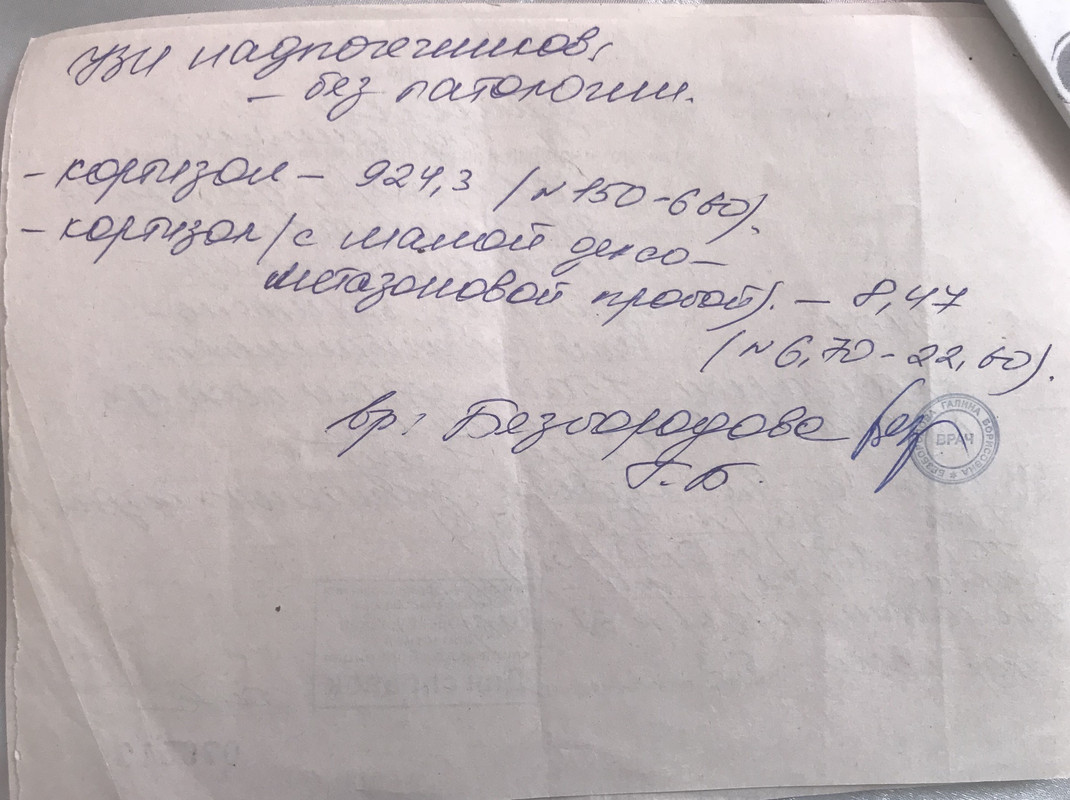 узи надпочечников,
– без патологии.
– кортизол – 924,3 (N 150-660).
– кортизол (с малой дексо–
метазоновой пробой). – 8,47
(N 6,70 - 22,60).
вр:
Г.Б.
ГАЛИНА БОРИСОВНА
ВРАЧ